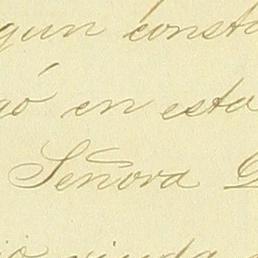 gun consta
gó en esta
Señora
viuda